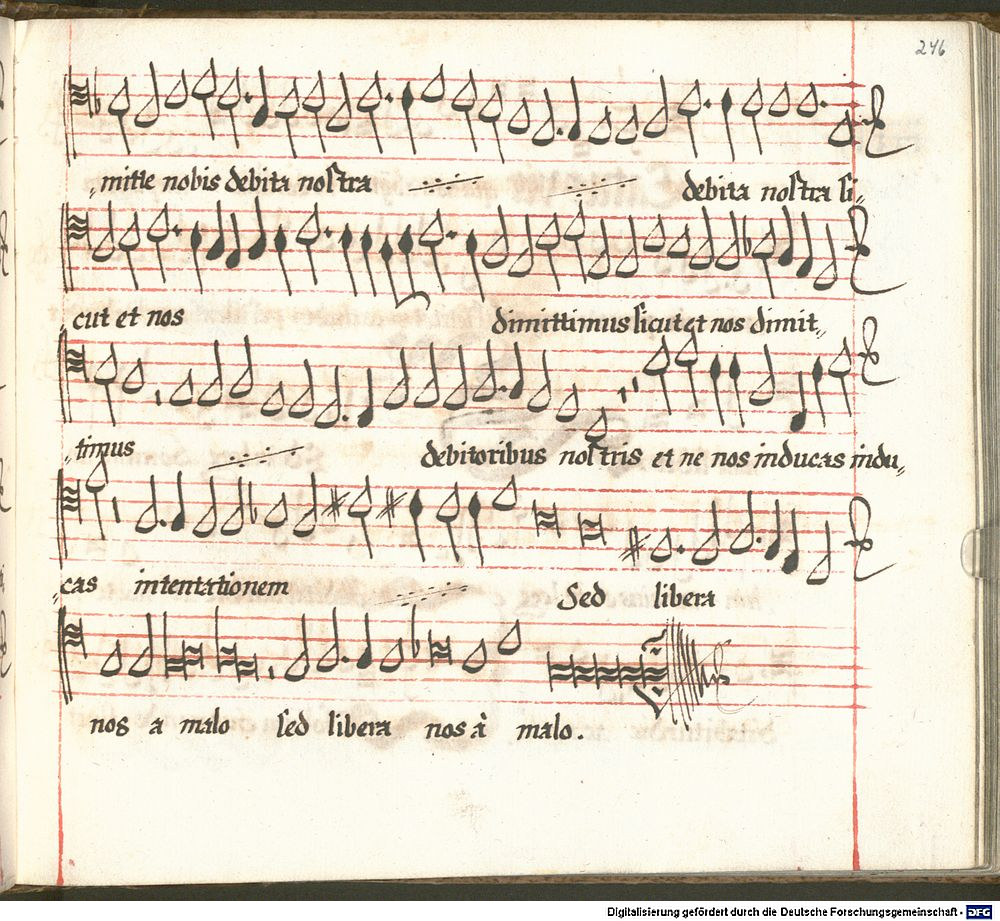 246
mitte nobis debita nostra debita nostra si-
cut et nos dimittimus sicut et nos dimit-
timus debitoribus nostris et ne nos inducas indu-
cas intentationem Sed libera
nos a malo sed libera nos à malo.
Digitalisierung gefördert durch die Deutsche Forschungsgemeinschaft - DFG